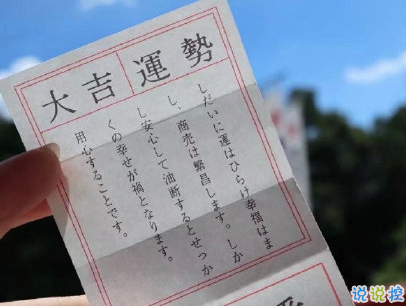 大吉運勢
しだいに運はひらけ幸福はま
し、商売は繁昌します。しか
し安心して油断するとせっか
くの幸せが禍となります。
用心することです。
说说控